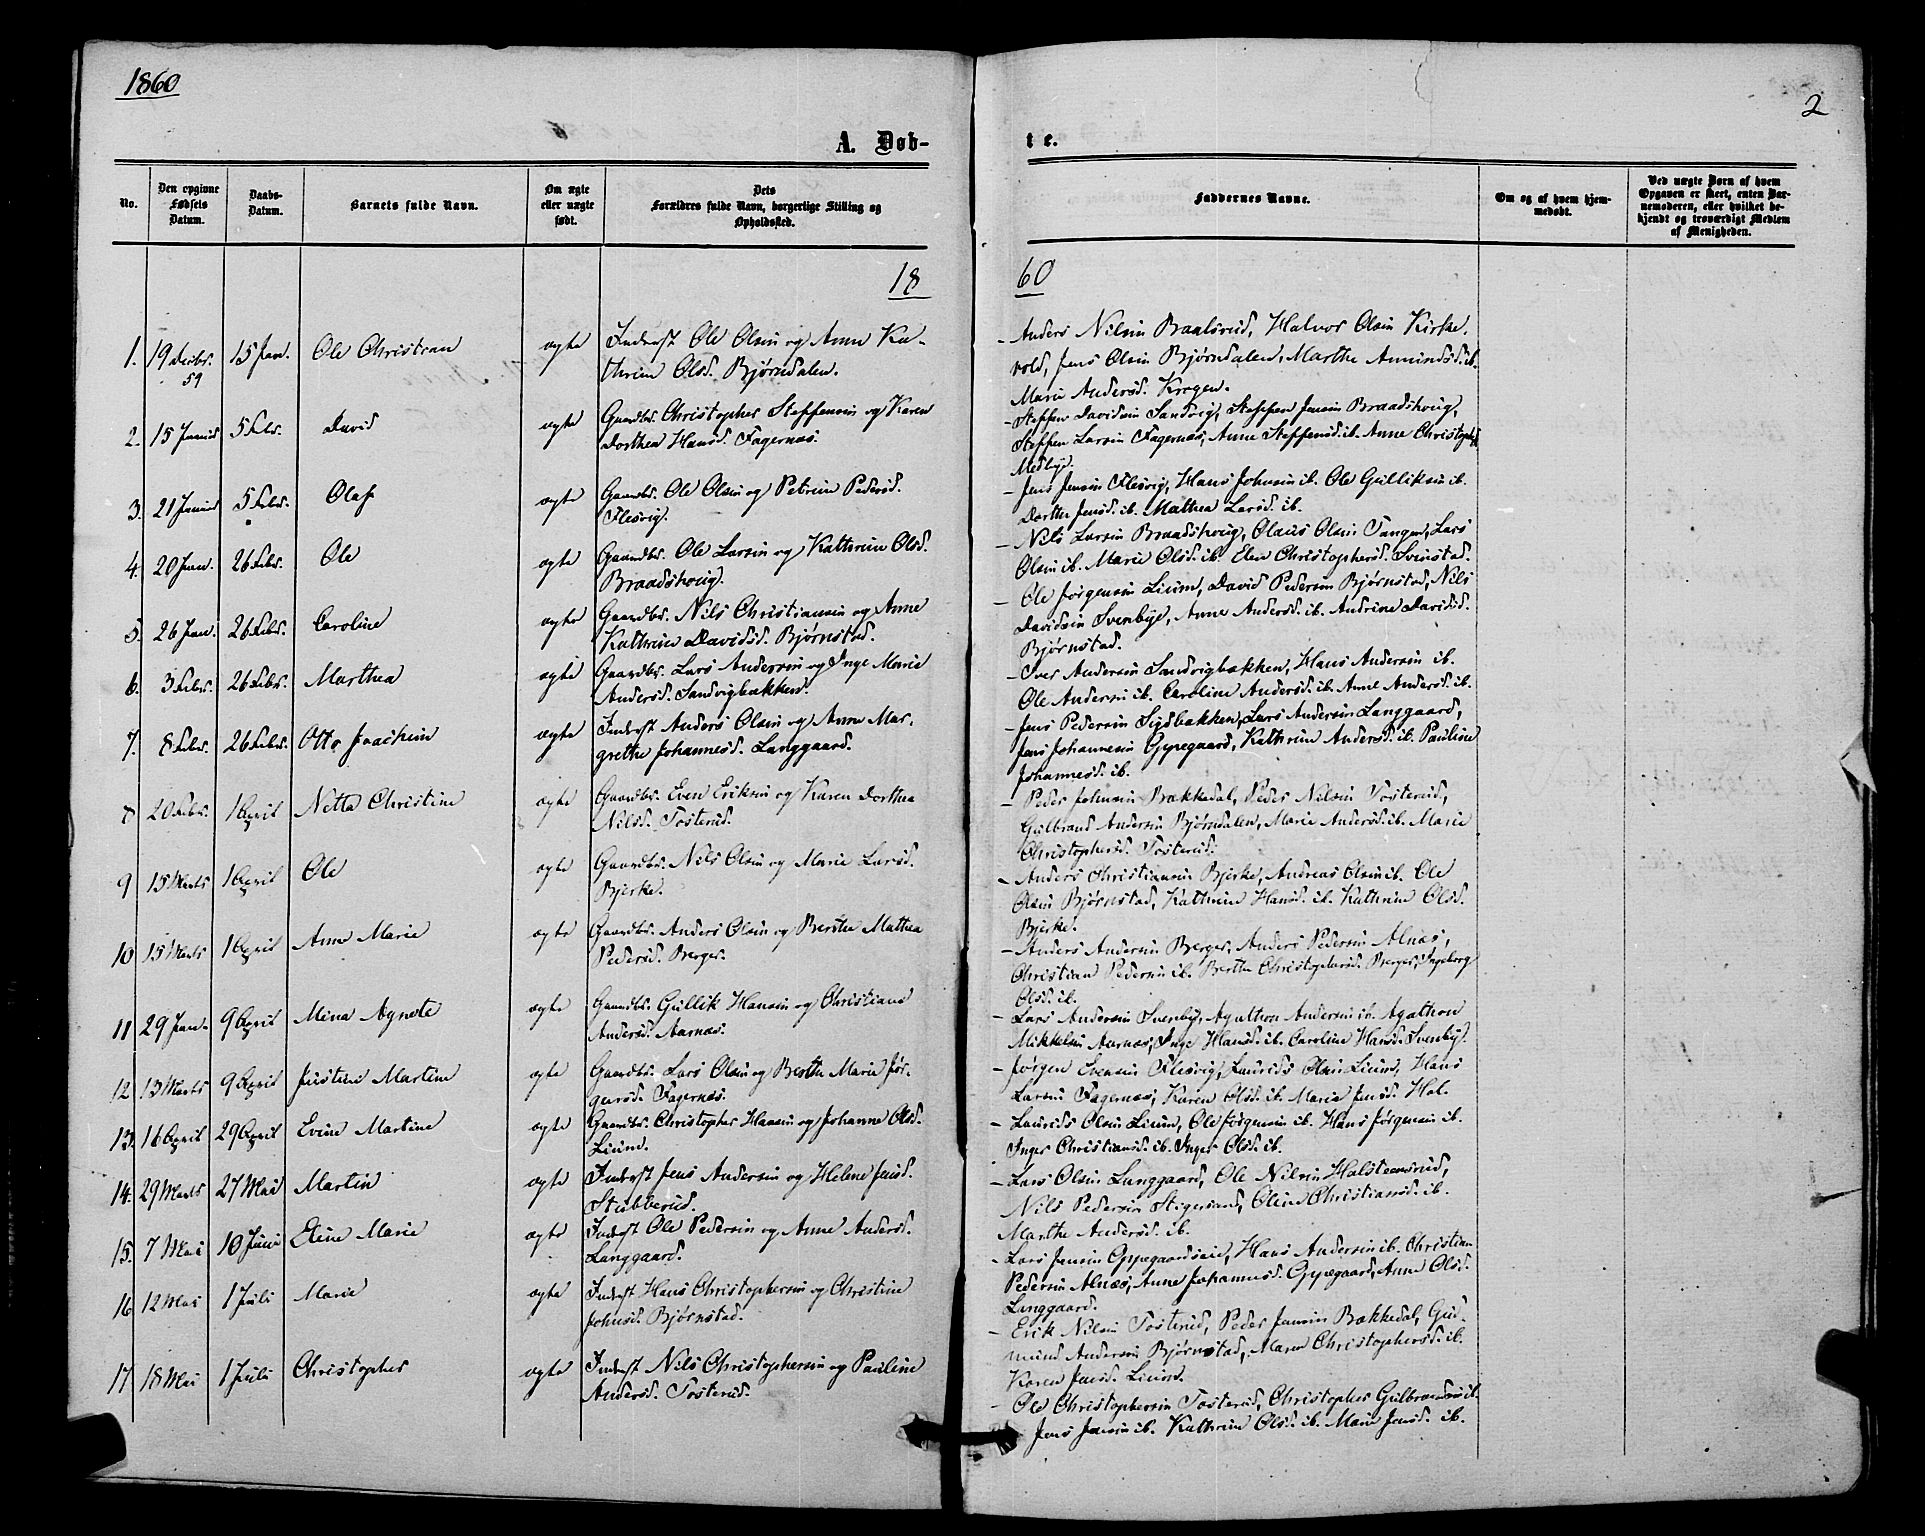 1860
2
A. Døb-
te.
No.
Den opgivne Fødsels Datum.
Daabs-Datum.
Barnets fulde Navn.
Om ægte eller uægte født.
Dets Forældres fulde Navn, borgerlige Stilling og Opholdssted.
Faddernes Navne.
Om og af hvem hjemmedøbt.
Ved uægte Børn af hvem Opgaven er skeet, enten Barnemoderen, eller hvilket bekjendt og troværdigt Medlem af Menigheden.
18
60
1. 19 Decbr. 59 15 Jan. Ole Christian ægte Inderst Ole Olsen og Anne Ka-
thrine Olsd. Bjørndalen.
Anders Nilsen Braatsrud, Halvor Olsen Kirke-
vold, Jens Olsen Bjørndalen, Marthe Amundsd. ib.
Marie Andersd. Krogen.
2. 15 Januar 5 Febr. David ægte Gaardbr. Christopher Steffensen og Karen
Dorthea Hansd. Fagernæs.
Steffen Davidsen Sandvig, Steffen Jensen Braadshoug,
Steffen Larsen Fagernæs, Anne Steffensd. ib. Anne Christophersd.
Medbye.
3. 21 Januar 5 Febr. Olaf ægte Gaardbr. Ole Olsen og Petrine Pedersd.
Flesvig.
Jens Jensen Flesvig, Hans Johnsen ib. Ole Gulliksen ib.
Dorthe Jensd. ib. Mathea Larsd. ib.
4. 20 Jan. 26 Febr. Ole ægte Gaardbr. Ole Larsen og Kathrine Olsd.
Braadshoug.
Nils Larsen Braadshoug, Olaus Olsen Tangen, Lars
Olsen ib. Marie Olsd. ib. Elen Christophersd. Svenstad.
5. 26 Jan. 26 Febr. Caroline ægte Gaardbr. Nils Christiansen og Anne
Kathrine Davidsd. Bjørnstad.
Ole Jørgensen Lium, David Pedersen Bjørnstad, Nils
Davidsen Svenbye, Anne Andersd. ib. Andrine Davidsd.
Bjørnstad.
6. 3 Febr. 26 Febr. Marthea ægte Gaardbr. Lars Andersen og Inge Marie
Andersd. Sandvigbakken.
Iver Andersen Sandvigbakken, Hans Andersen ib.
Ole Andersen ib. Caroline Andersd. ib. Anne Andersd. ib.
7. 8 Febr. 26 Febr. Otto Joachim ægte Inderst Anders Olsen og Anne Mar-
grethe Johannesd. Langgaard.
Jens Pedersen Sydbakken, Lars Andersen Langgaard,
Jens Johannesen Oppegaard, Kathrine Andersd. ib. Pauline
Johannesd. ib.
8 20 Febr. 1 April Netta Christine ægte Gaardbr. Even Eriksen og Karen Dorthea
Nilsd. Tosterud.
Peder Johnsen Bækkedal, Peder Nilsen Tosterud,
Gulbrand Andersen Bjørndalen, Marie Andersd. ib. Marie
Christophersd. Tosterud.
9 15 Marts 1 April Ole ægte Gaardbr. Nils Olsen og Marie Larsd.
Bjerke.
Anders Christiansen Bjerke, Andreas Olsen ib. Ole
Olsen Bjørnstad, Kathrine Hansd. ib. Kathrine Olsd.
Bjerke.
10 15 Marts 1 April Anne Marie ægte Gaardbr. Anders Olsen og Berthe Mathea
Pedersd. Berger.
Anders Andersen Berger, Anders Pedersen Alnæs,
Christian Pedersen ib. Berthe Christophersd. Berger, Ingeborg
Olsd. ib.
11 29 Jan. 9 April Mina Agnete ægte Gaardbr. Gullik Hansen og Christiane
Andersd. Aarnæs.
Lars Andersen Svenby, Agathon Andersen ib. Agathon
Mikkelsen Aarnæs, Inge Hansd. ib. Caroline Hansd. Svenby.
12 13 Marts 9 April Justine Martine ægte Gaardbr. Lars Olsen og Berthe Marie Jør-
gensd. Fagernæs.
Jørgen Svensen Flesvig, Laurids Olsen Lium, Hans
Larsen Fagernæs, Karen Olsd. ib. Marie Jensd. Hol.
13. 16 April 29 April Evine Martine ægte Gaardbr. Christopher Hansen og Johanne Olsd.
Lium.
Laurids Olsen Lium, Ole Jørgensen ib. Hans Jørgensen ib.
Inger Christiansd. ib. Inger Olsd. ib.
14. 29 Marts 27 Mai Martin ægte Inderst Jens Andersen og Helene Jensd.
Stubberud.
Lars Olsen Langgaard, Ole Nilsen Halsteensrud,
Nils Pedersen Stigersand, Oline Christiansd. ib.
Marthe Andersd. ib.
15. 7 Mai 10 Juni Eline Marie ægte Inderst Ole Pedersen og Anne Andersd.
Langgaard.
Lars Jensen Oppegaardseie, Hans Andersen ib. Christian
Pedersen Alnæs, Anne Johannesd. Oppegaard, Anne Olsd.
Langgaard.
16 12 Mai 1 Juli Marie ægte Inderst Hans Christophersen og Christine
Johnsd. Bjørnstad.
Erik Nilsen Tosterud, Peder Jensen Bækkedal, Gud-
mund Andersen Bjørnstad, Maren Christophersd. ib.
Karen Jensd. Lium.
17 18 Mai 1 Juli Christopher ægte Inderst Nils Christophersen og Pauline
Andersd. Tosterud.
Ole Christophersen Tosterud, Christopher Gulbrandsen ib.
Jens Jensen ib. Kathrine Olsd. ib. Marie Jensd. ib.